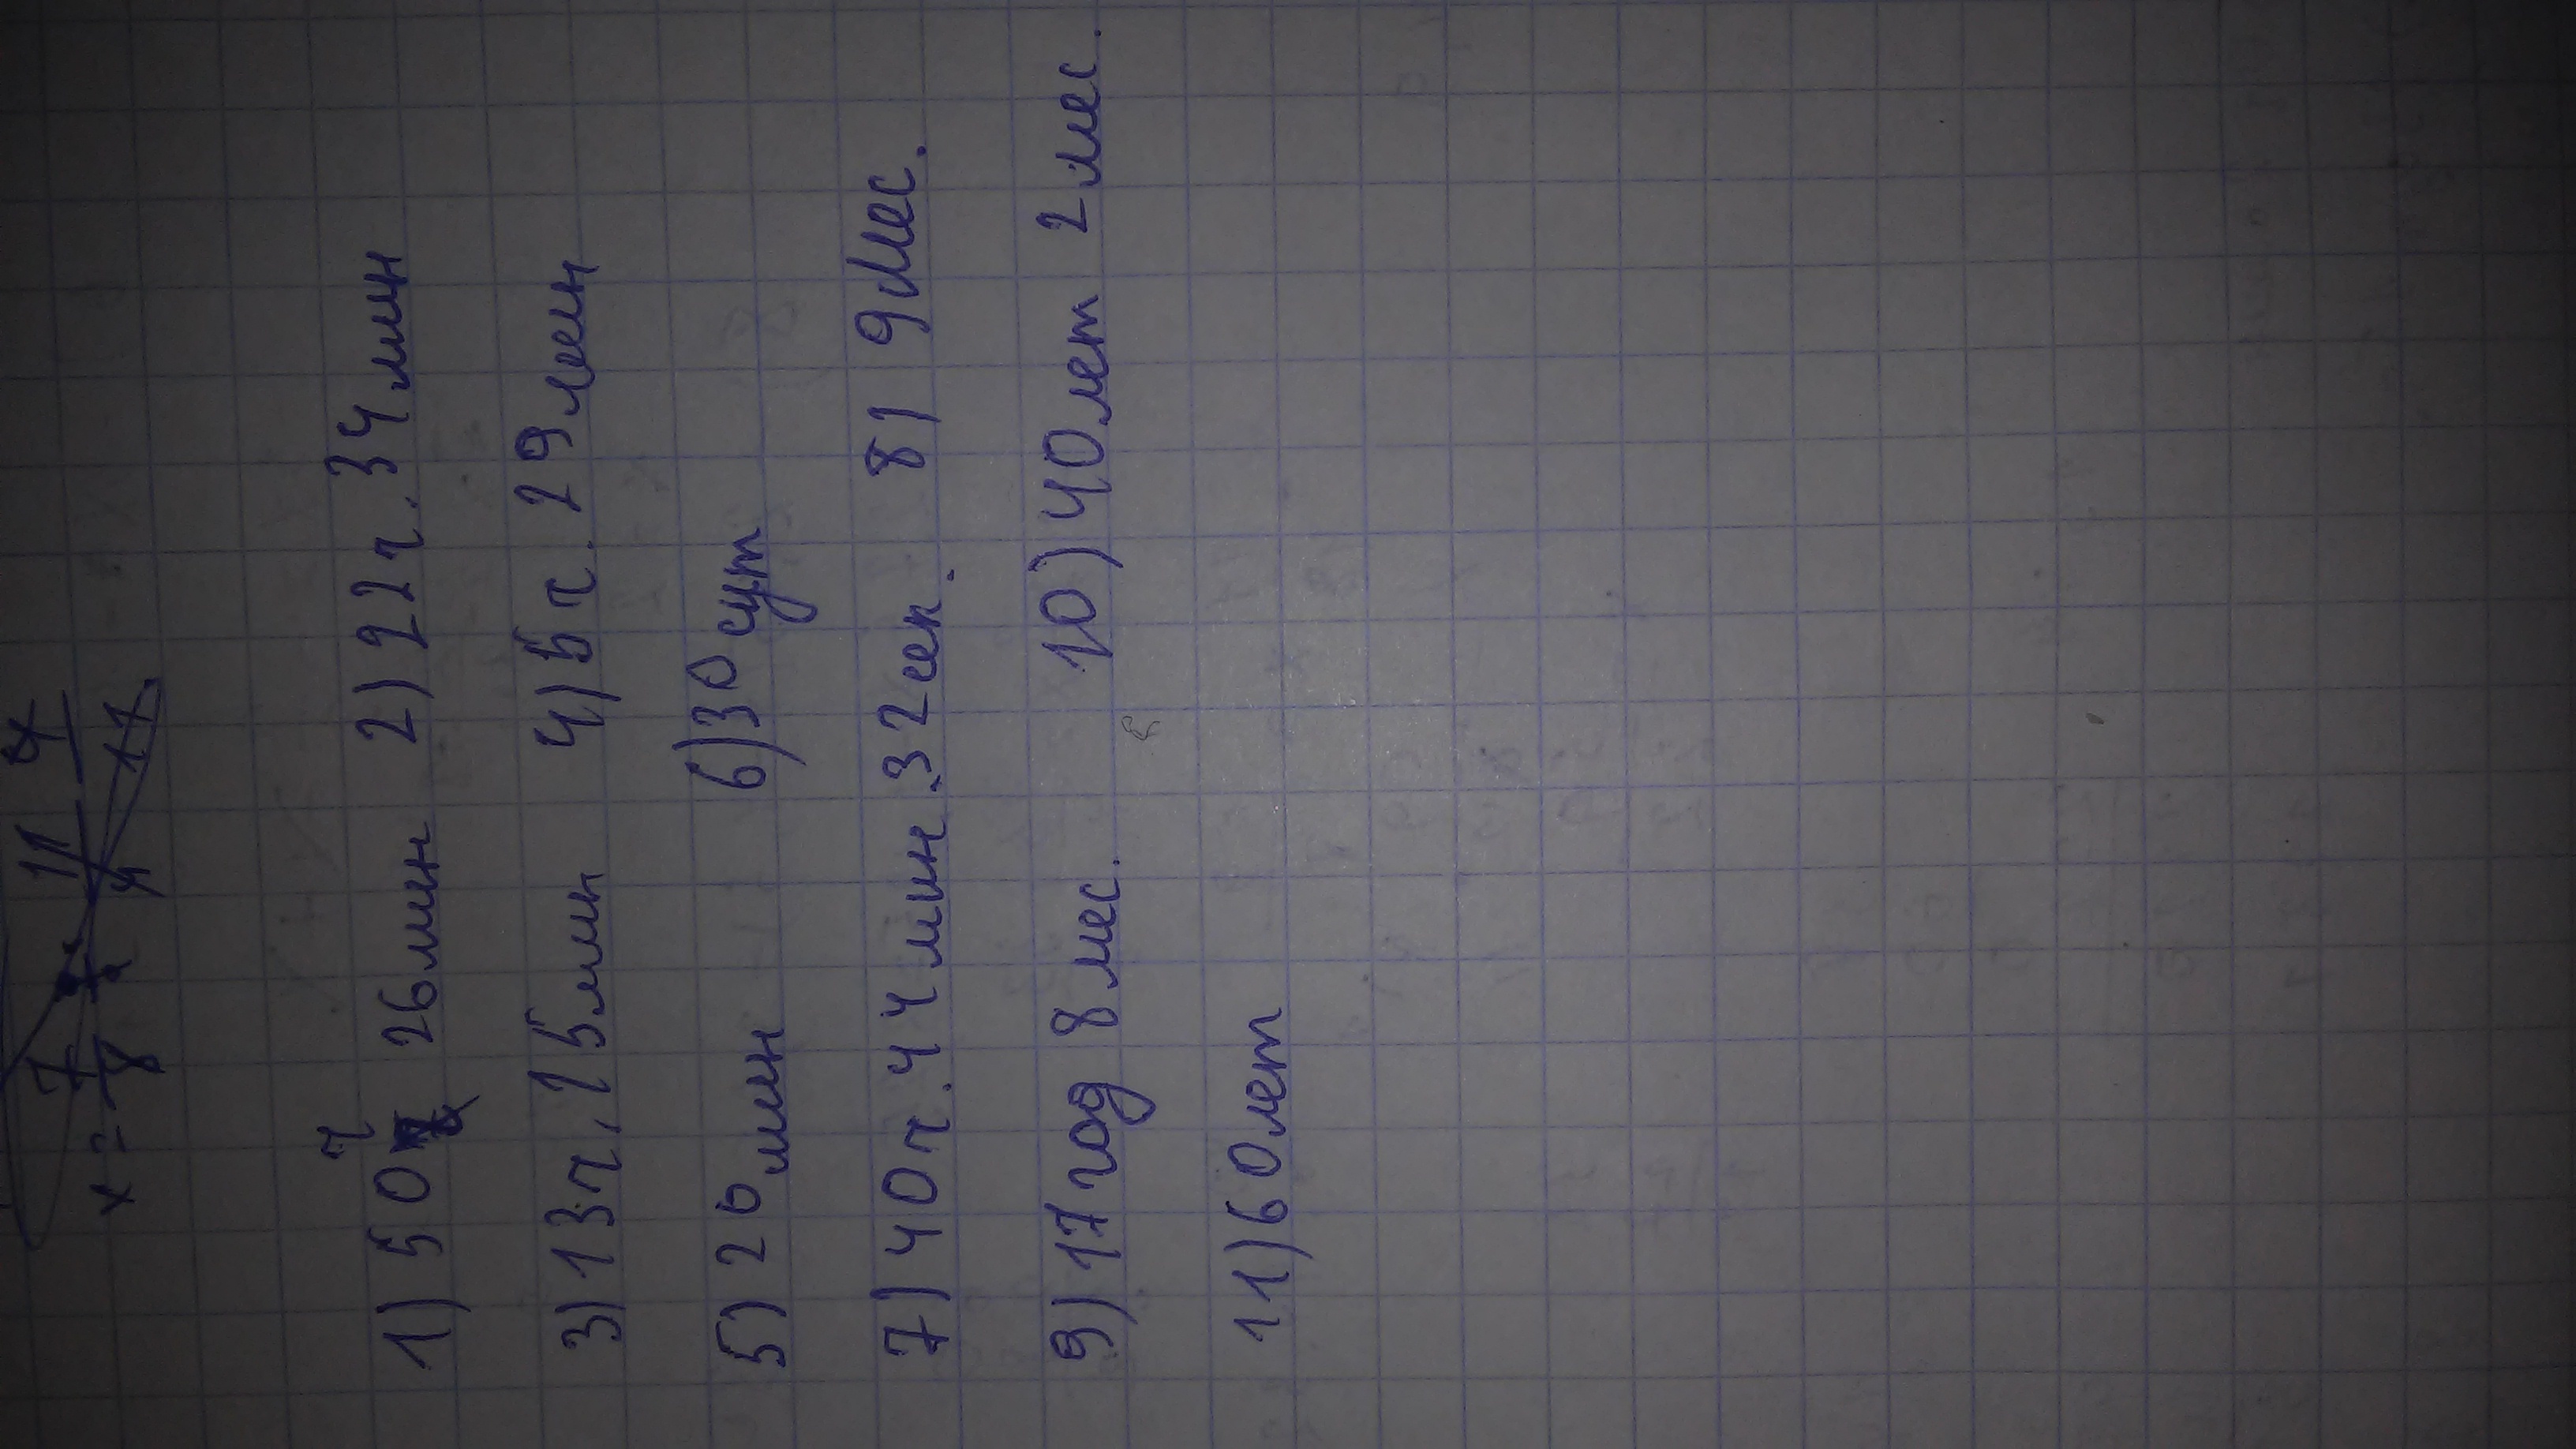 x = 7/8
1) 50 ч 26 мин 2) 22 ч. 34 мин
3) 13 ч. 15 мин 4) 5 ч. 29 мин
5) 20 мин 6) 30 сут
7) 40 ч. 44 мин. 32 сек. 8) 9 мес.
9) 17 год 8 мес. 10) 40 лет 2 мес.
11) 60 лет